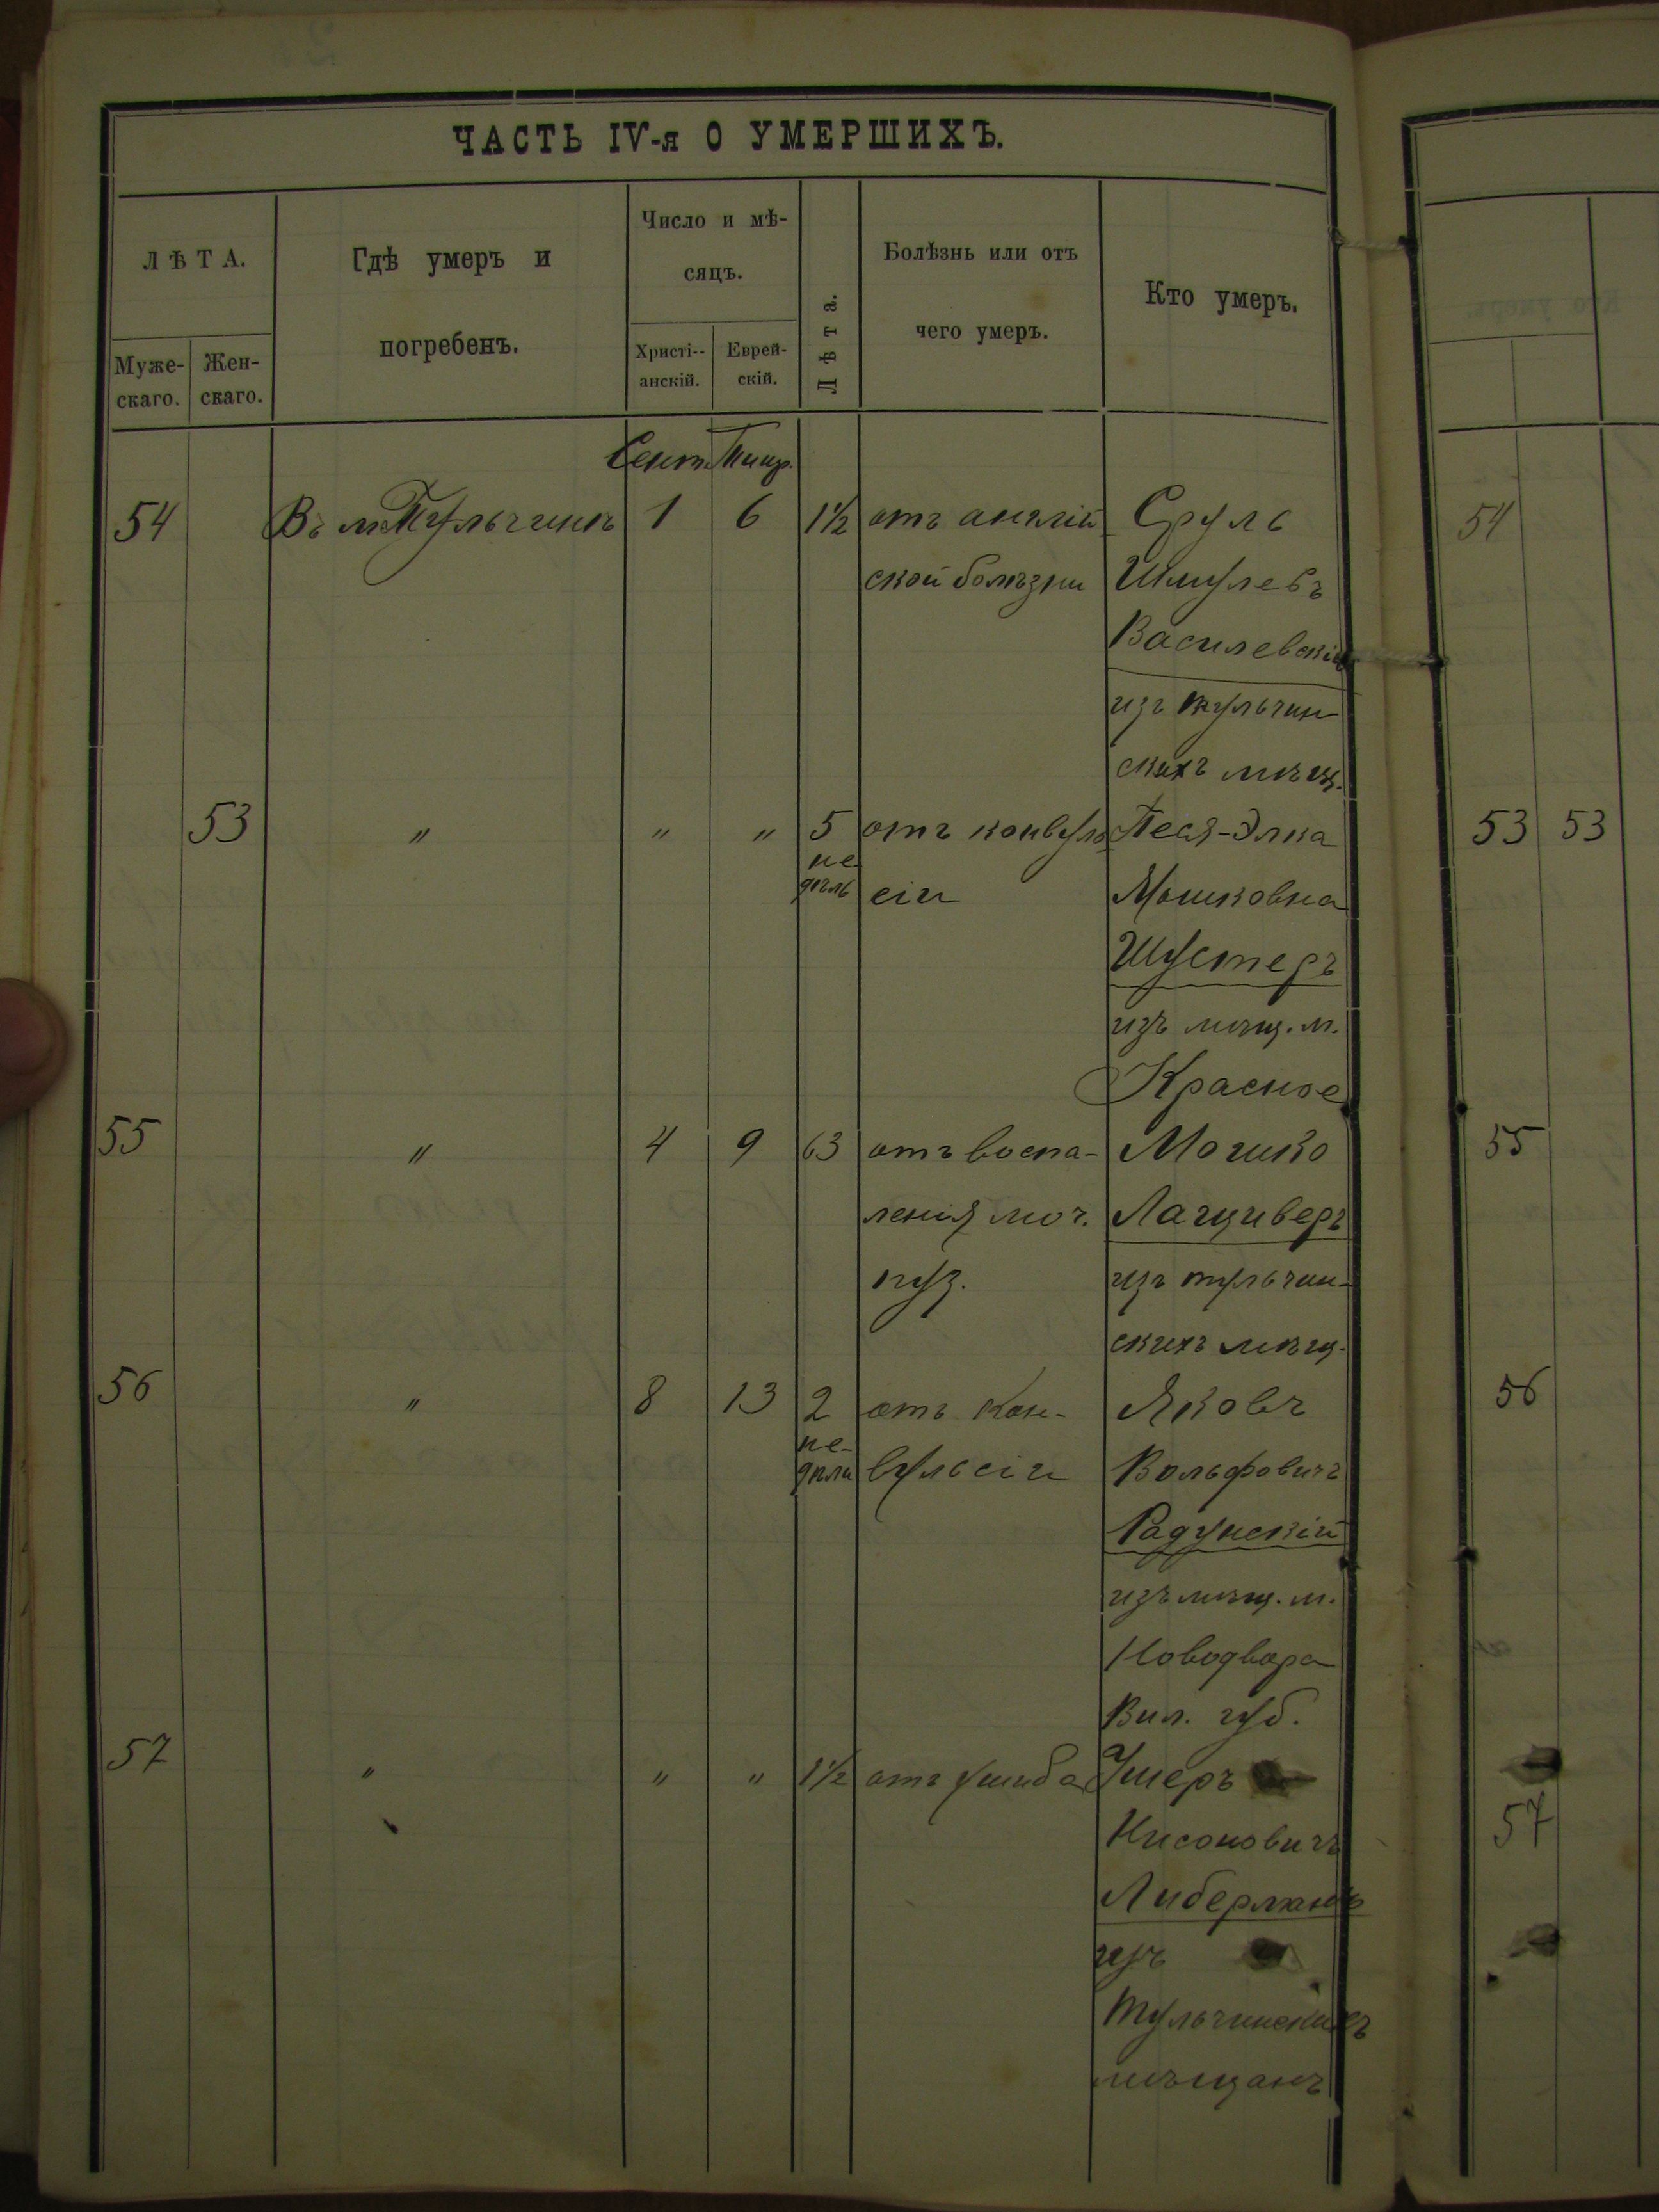 ЧАСТЬ IV-я О УМЕРШИХЪ.
ЛѢТА.
Муже-
скаго.
Жен-
скаго.
Гдѣ умеръ и
погребенъ.
Число и мѣ-
сяцъ.
Христі--
анскій.
Еврей-
скій.
Лѣта.
Болѣзнь или отъ
чего умеръ.
Кто умеръ.
Сент. Тишр.
54 Въ м. Тульчинѣ 1 6 1½ отъ англій Сруль
ской болѣзни Шмулевъ
Василевскій
изъ тульчин
скихъ мѣщ.
53 " " " 5 отъ конвуль Песя-Элка
не
дѣль сіи Мошковна
Шустеръ
изъ мѣщ. м.
Красное
55 " 4 9 63 отъ воспа- Мошко
ленія моч. Лащиверъ
пуз. изъ тульчин-
скихъ мѣщ.
56 " 8 13 2 отъ кон- Яковъ
не-
дѣли вульсіи Вольфовичъ
Радунскій
изъ мѣщ. м.
Новодвора
Вил. губ.
57 " " " 1½ отъ ушиба Ушеръ
Нисоновичъ
Либерманъ
изъ
тульчинскихъ
мѣщанъ
54
53 53
55
56
57